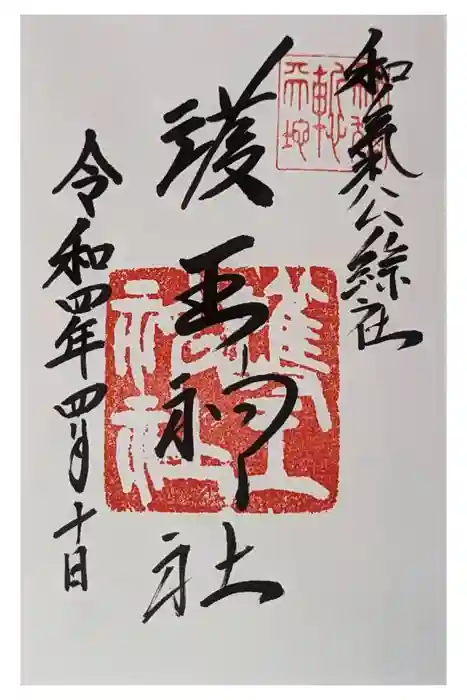 和氣公綜社
護王神社
令和四年四月十日
護王神社